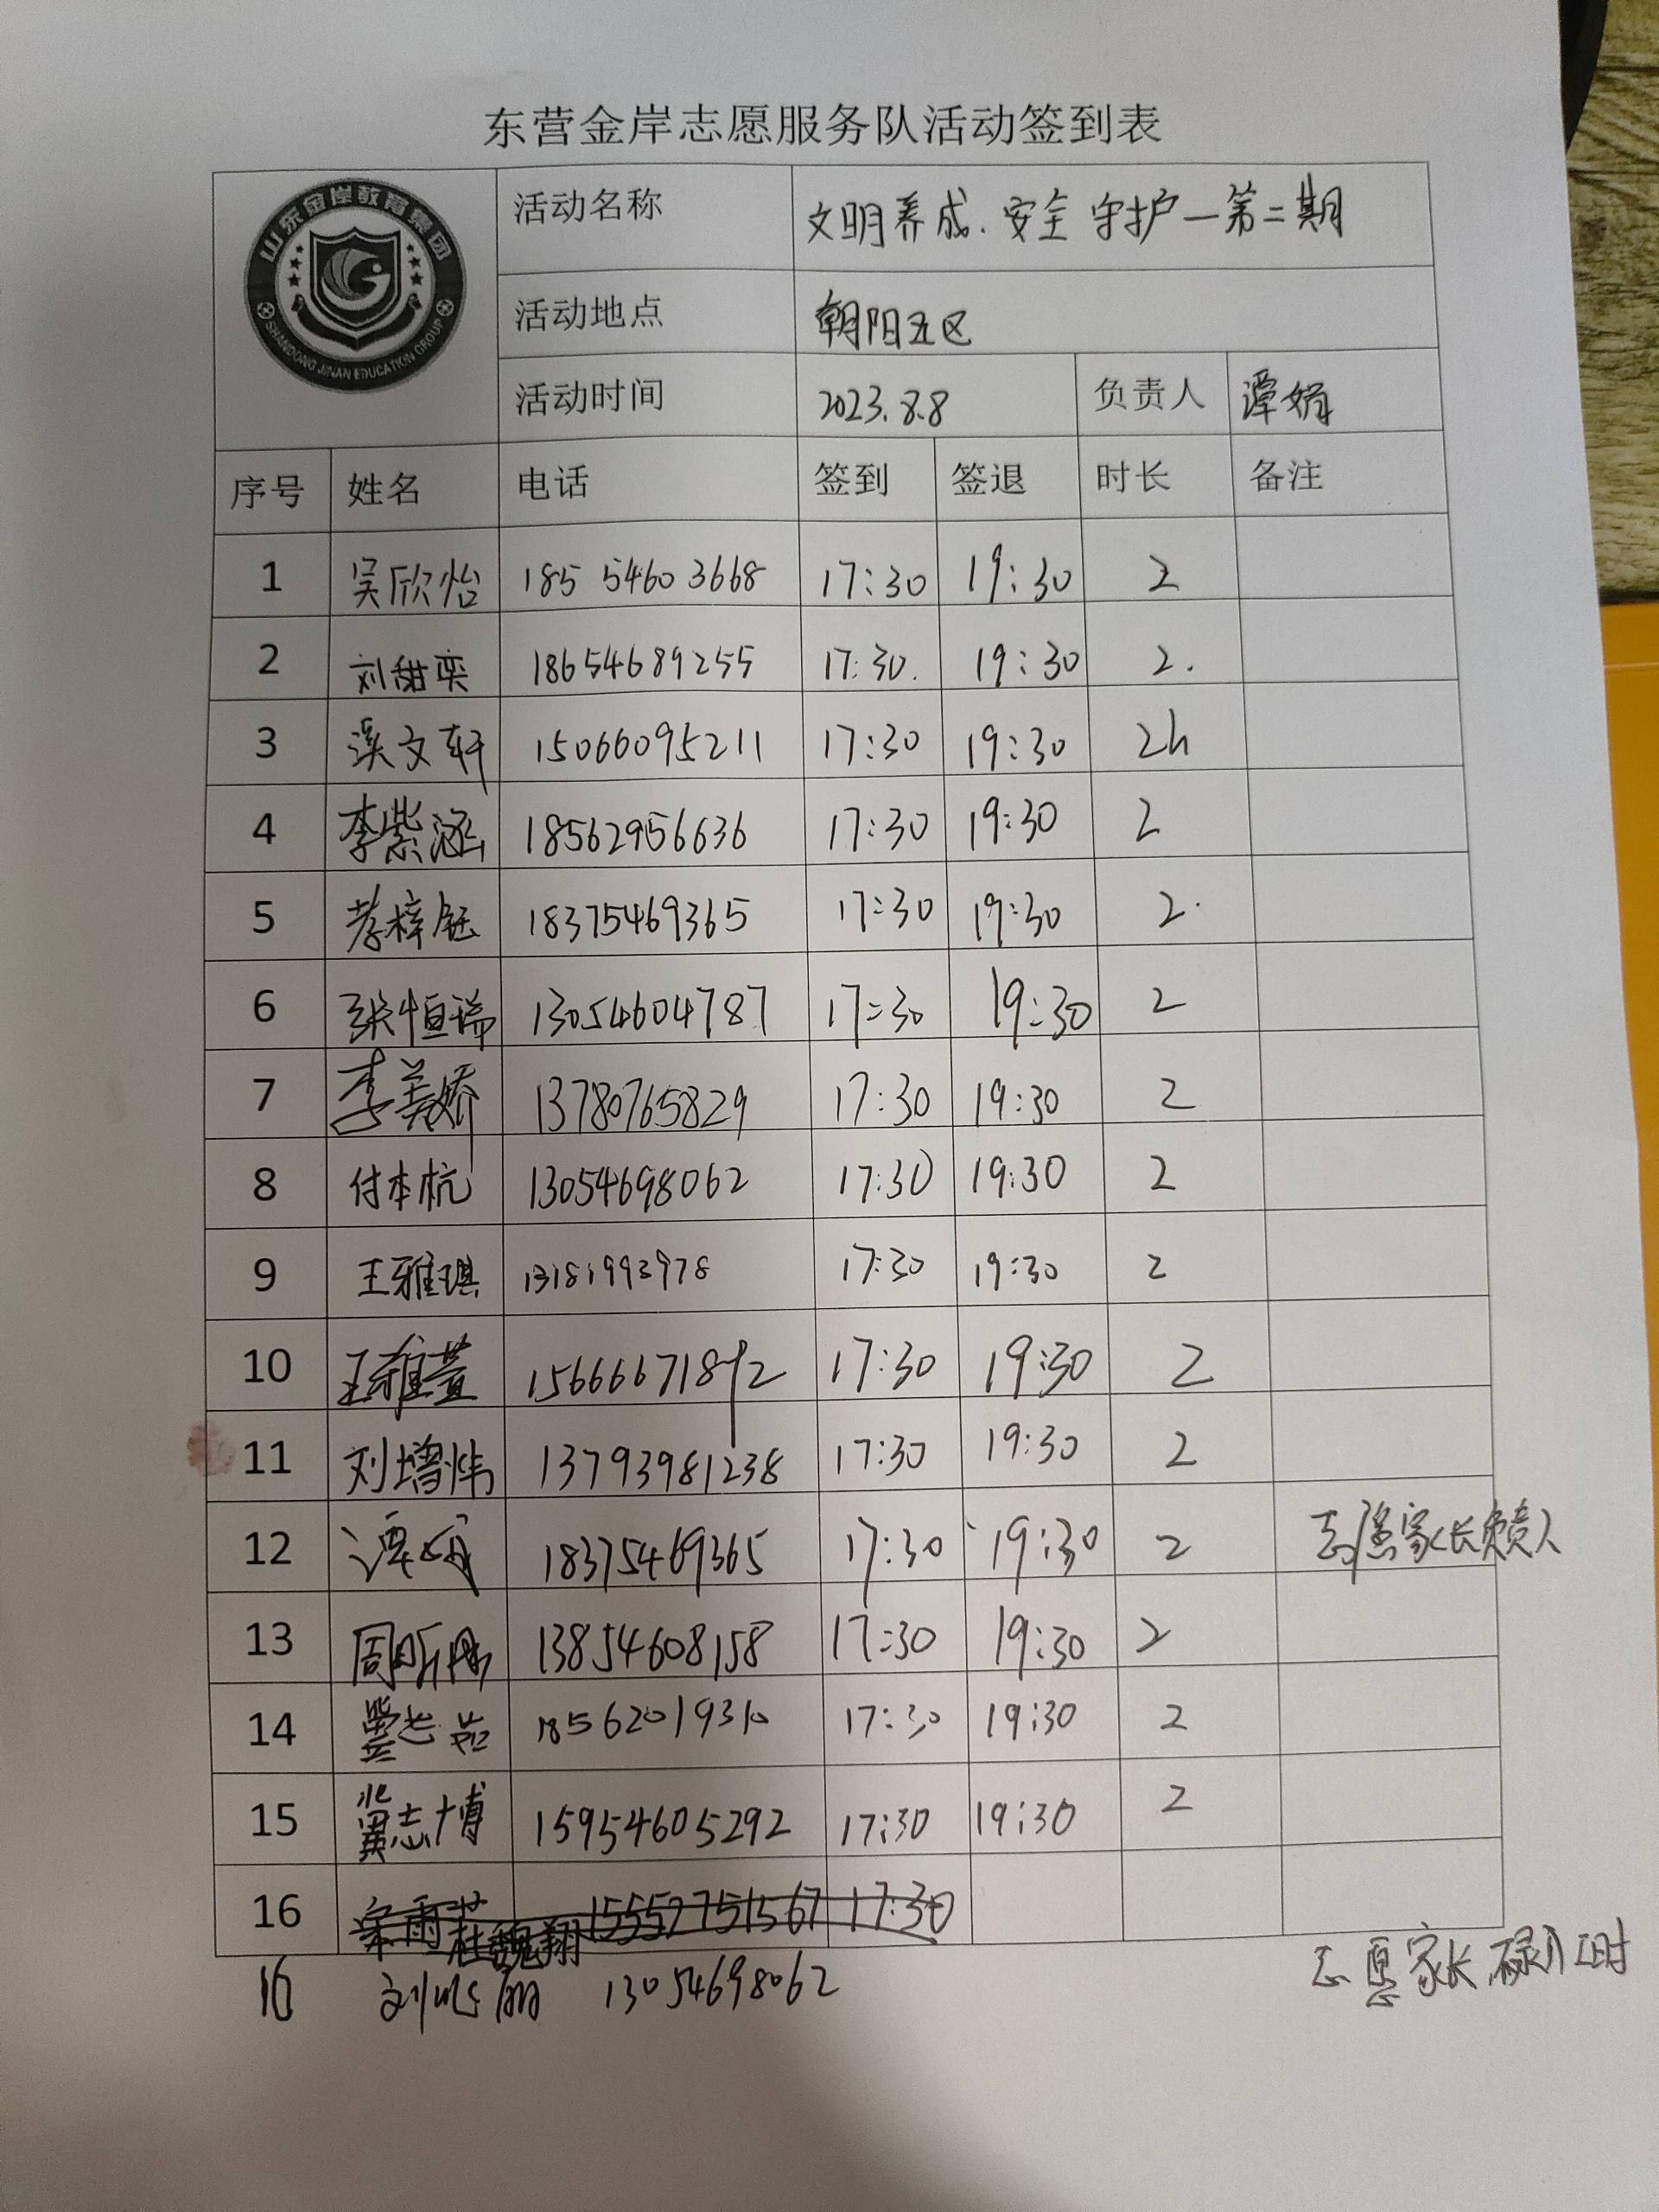 东营金岸志愿服务队活动签到表
山东金岸教育集团
SHANDONG JINAN EDUCATION GROUP
活动名称 文明养成.安全守护—第二期
活动地点 朝阳五区
活动时间 2023.8.8 负责人 谭娟
序号 姓名 电话 签到 签退 时长 备注
1 吴欣怡 185 5460 3668 17:30 19:30 2
2 刘甜奕 18654689255 17:30. 19:30 2.
3 文轩 15066095211 17:30 19:30 2h
4 李紫涵 18562956636 17:30 19:30 2
5 梓钰 18375469365 17:30 19:30 2.
6 张恒瑞 13054604787 17:30 19:30 2
7 李美娇 13780765829 17:30 19:30 2
8 付本杭 13054698062 17:30 19:30 2
9 王雅琪 13181993978 17:30 19:30 2
10 王雅萱 15666671892 17:30 19:30 2
11 刘增炜 13793981238 17:30 19:30 2
12 谭娟 18375469365 17:30 19:30 2 志愿家长负责人
13 周昕 13854608158 17:30 19:30 2
14 18562019310 17:30 19:30 2
15 冀志博 15954605292 17:30 19:30 2
16 雨 杜魏翔 15552751567 17:30
16 刘 丽 13054698062 志愿家长,录入工时